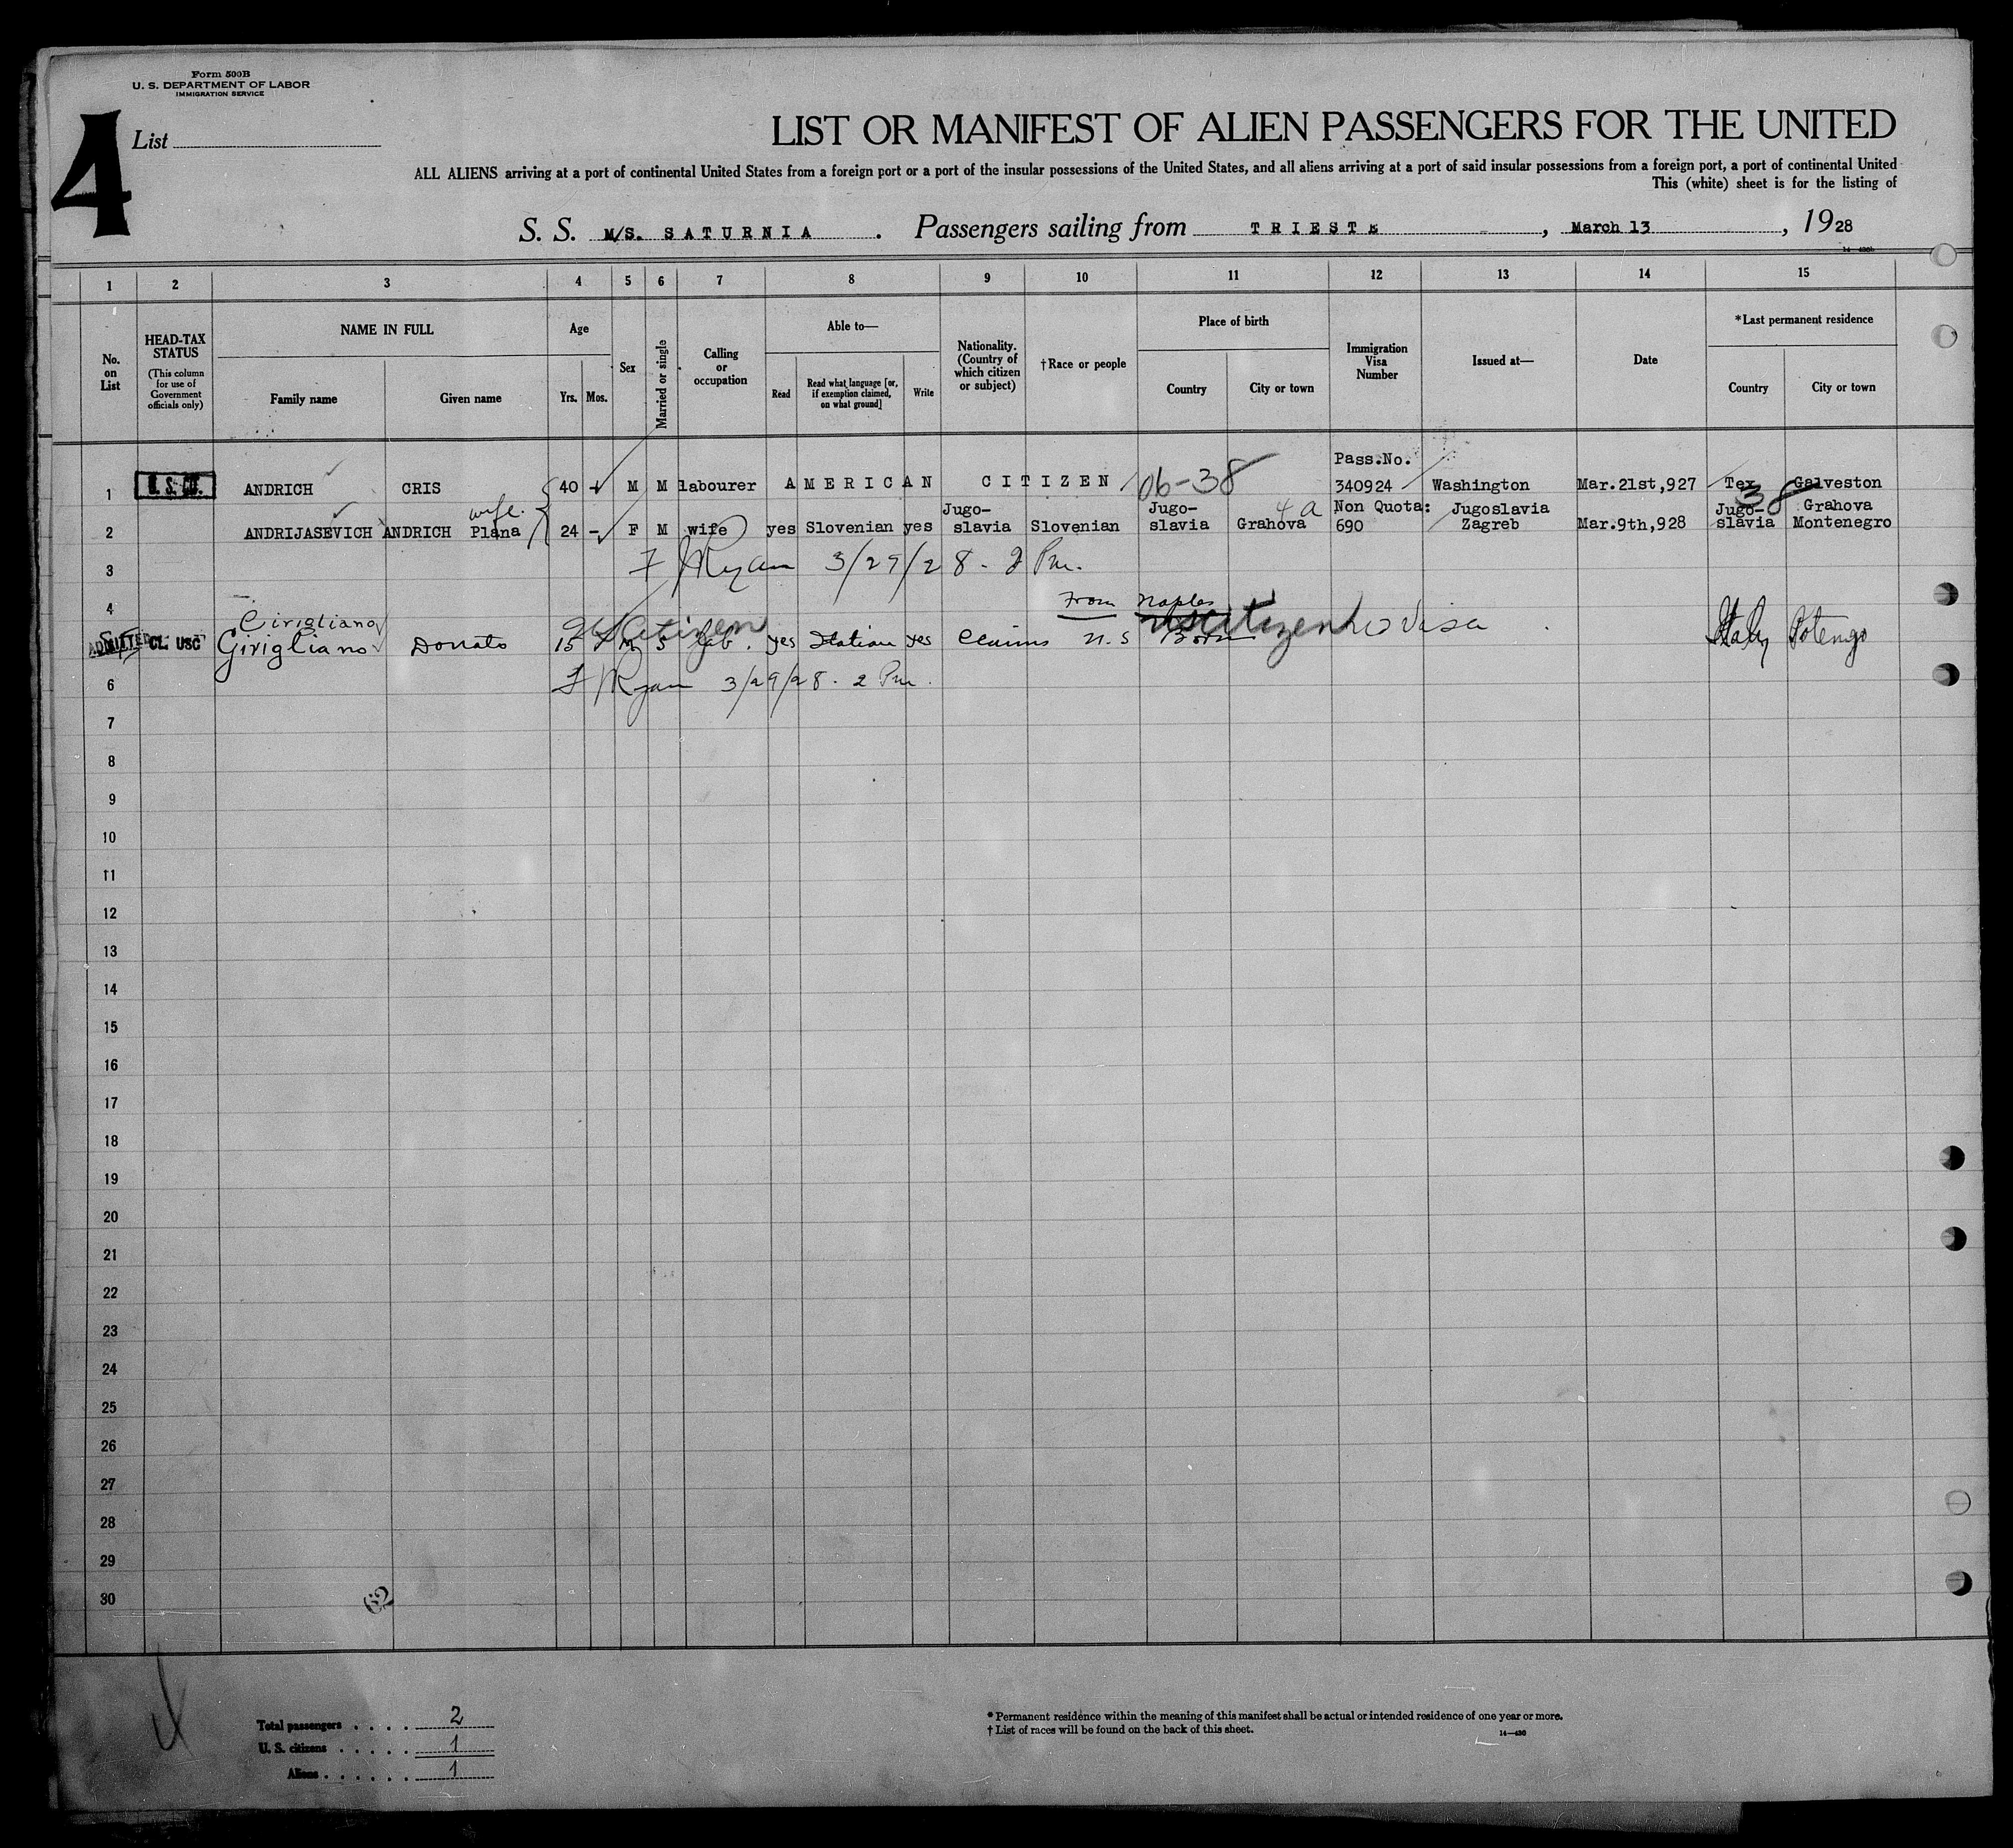 Form 500B
U. S. DEPARTMENT OF LABOR
IMMIGRATION SERVICE
4
List
LIST OR MANIFEST OF ALIEN PASSENGERS FOR THE UNITED
ALL ALIENS arriving at a port of continental United States from a foreign port or a port of the insular possessions of the United States, and all aliens arriving at a port of said insular possessions from a foreign port, a port of continental United
This (white) sheet is for the listing of
S. S. M/S. SATURNIA . Passengers sailing from TRIESTE , March 13 , 1928
1 2 3 4 5 6 7 8 9 10 11 12 13 14 15
No. on List
HEAD-TAX STATUS
(This column for use of Government officials only)
NAME IN FULL
Family name
Given name
Age
Yrs. Mos.
Sex
Married or single
Calling or occupation
Able to—
Read
Read what language [or, if exemption claimed, on what ground]
Write
Nationality. (Country of which citizen or subject)
†Race or people
Place of birth
Country
City or town
Immigration Visa Number
Issued at—
Date
*Last permanent residence
Country
City or town
Pass.No.
1 U.S.CIT. ANDRICH CRIS 40 M M labourer AMERICAN CITIZEN 06-38 340924 Washington Mar.21st,927 Tex Galveston
38
wife. Jugo- Jugo- 4a Non Quota: Jugoslavia Jugo- Grahova
2 ANDRIJASEVICH ANDRICH Plana 24 - F M wife yes Slovenian yes slavia Slovenian slavia Grahova 690 Zagreb Mar.9th,928 slavia Montenegro
3 F Ryan 3/29/28 - 2 Pm.
4 From Naples
Cirigliano US Citizen US Citizen no Visa
ADMITTED CL. USC Girigliano Donato 15 M S lab. yes Italian yes Claims U.S Born Italy Potenga
6 F Ryan 3/29/28. 2 Pm.
7
8
9
10
11
12
13
14
15
16
17
18
19
20
21
22
23
24
25
26
27
28
29
30
62
Total passengers . . . . 2
U. S. citizens . . . . . 1
Aliens . . . . . . 1
* Permanent residence within the meaning of this manifest shall be actual or intended residence of one year or more.
† List of races will be found on the back of this sheet.
14—430